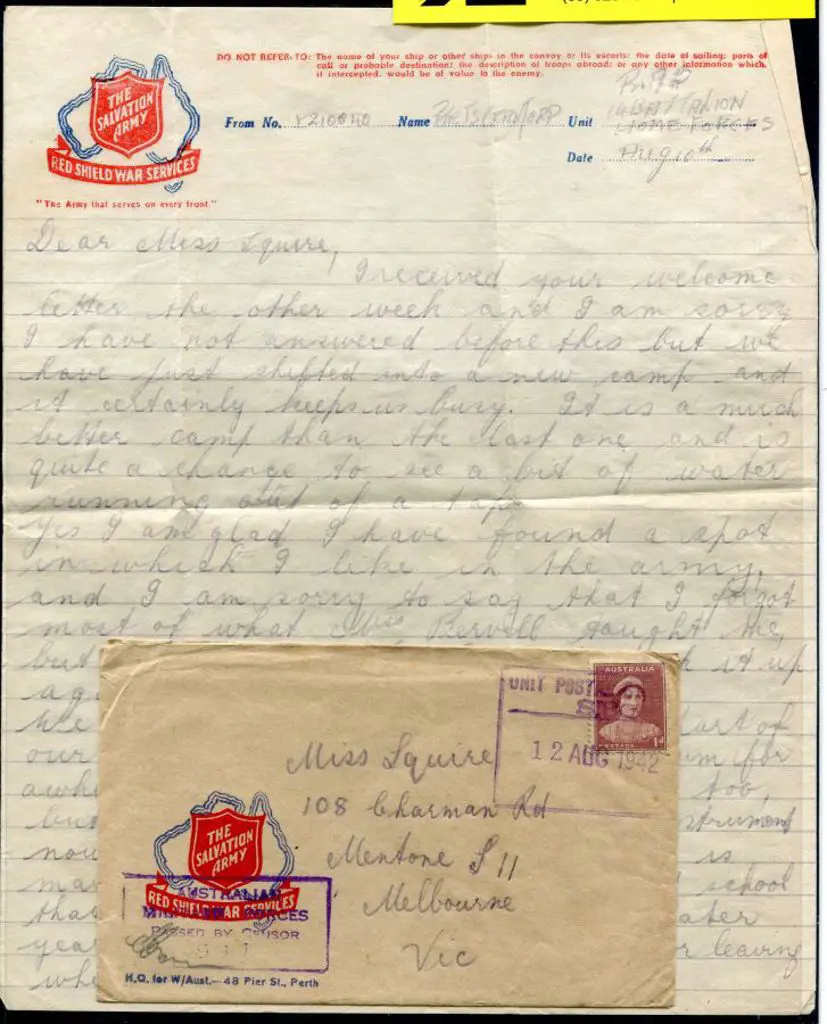 DO NOT REFER TO: The name of your ship or other ships in the convoy or its escorts: the date of sailing; ports of
call or probable destination; the description of troops abroad; or any other information which,
if intercepted, would be of value to the enemy.
THE
SALVATION
ARMY
RED SHIELD WAR SERVICES
"The Army that serves on every front"
From No. Name Unit
14 BATTALION
HOME FORCES
Date Aug 10th
Dear Miss Squire,
I received your welcome
letter the other week and I am sorry
I have not answered before this but we
have just shifted into a new camp and
it certainly keeps us busy. It is a much
better camp than the last one and is
quite a change to see a bit of water
running out of a tap.
Yes I am glad I have found a spot
in which I like in the army,
and I am sorry to say that I forgot
most of what Miss taught me,
but it up
We
our for
too,
but
now is
school
that
year leaving
whe
UNIT POST
12 AUG 1942
AUSTRALIA
POSTAGE 1d
Miss Squire
108 Charman Rd
Mentone S 11
Melbourne
Vic
THE
SALVATION
ARMY
RED SHIELD WAR SERVICES
AUSTRALIAN
MILITARY FORCES
PASSED BY CENSOR
H.Q. for W/Aust.— 48 Pier St., Perth